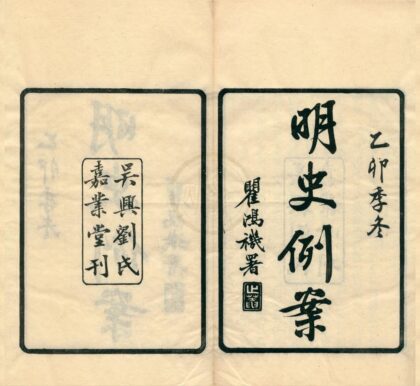 乙卯季冬
明史例案
瞿鴻禨署
吳興劉氏
嘉業堂刊